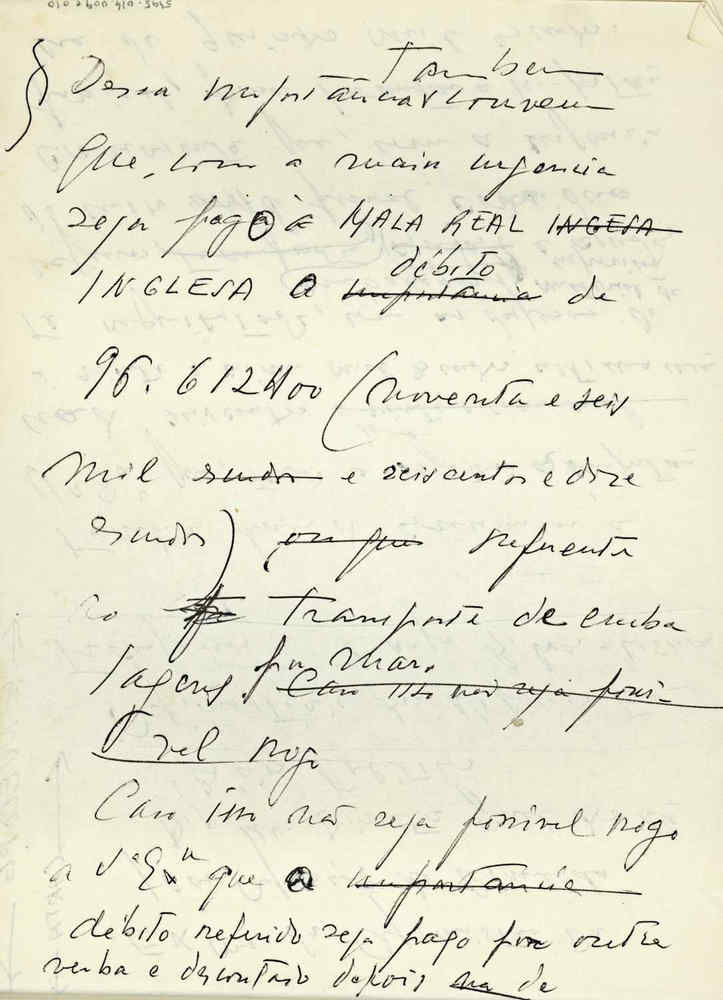 Tambem
Dessa importância convem
que, com a maior urgencia
seja pago à MALA REAL INGESA
débito
INGLESA o importancia de
96.612$00 (noventa e seis
mil escudos e seiscentos e doze
escudos) em que referente
ao transporte de emba
lagens por mar. Caso isso não seja possi-
vel rogo
Caso isso não seja possivel rogo
a V. Exª que o importancia
débito referido seja pago por outra
verba e descontado depois na de